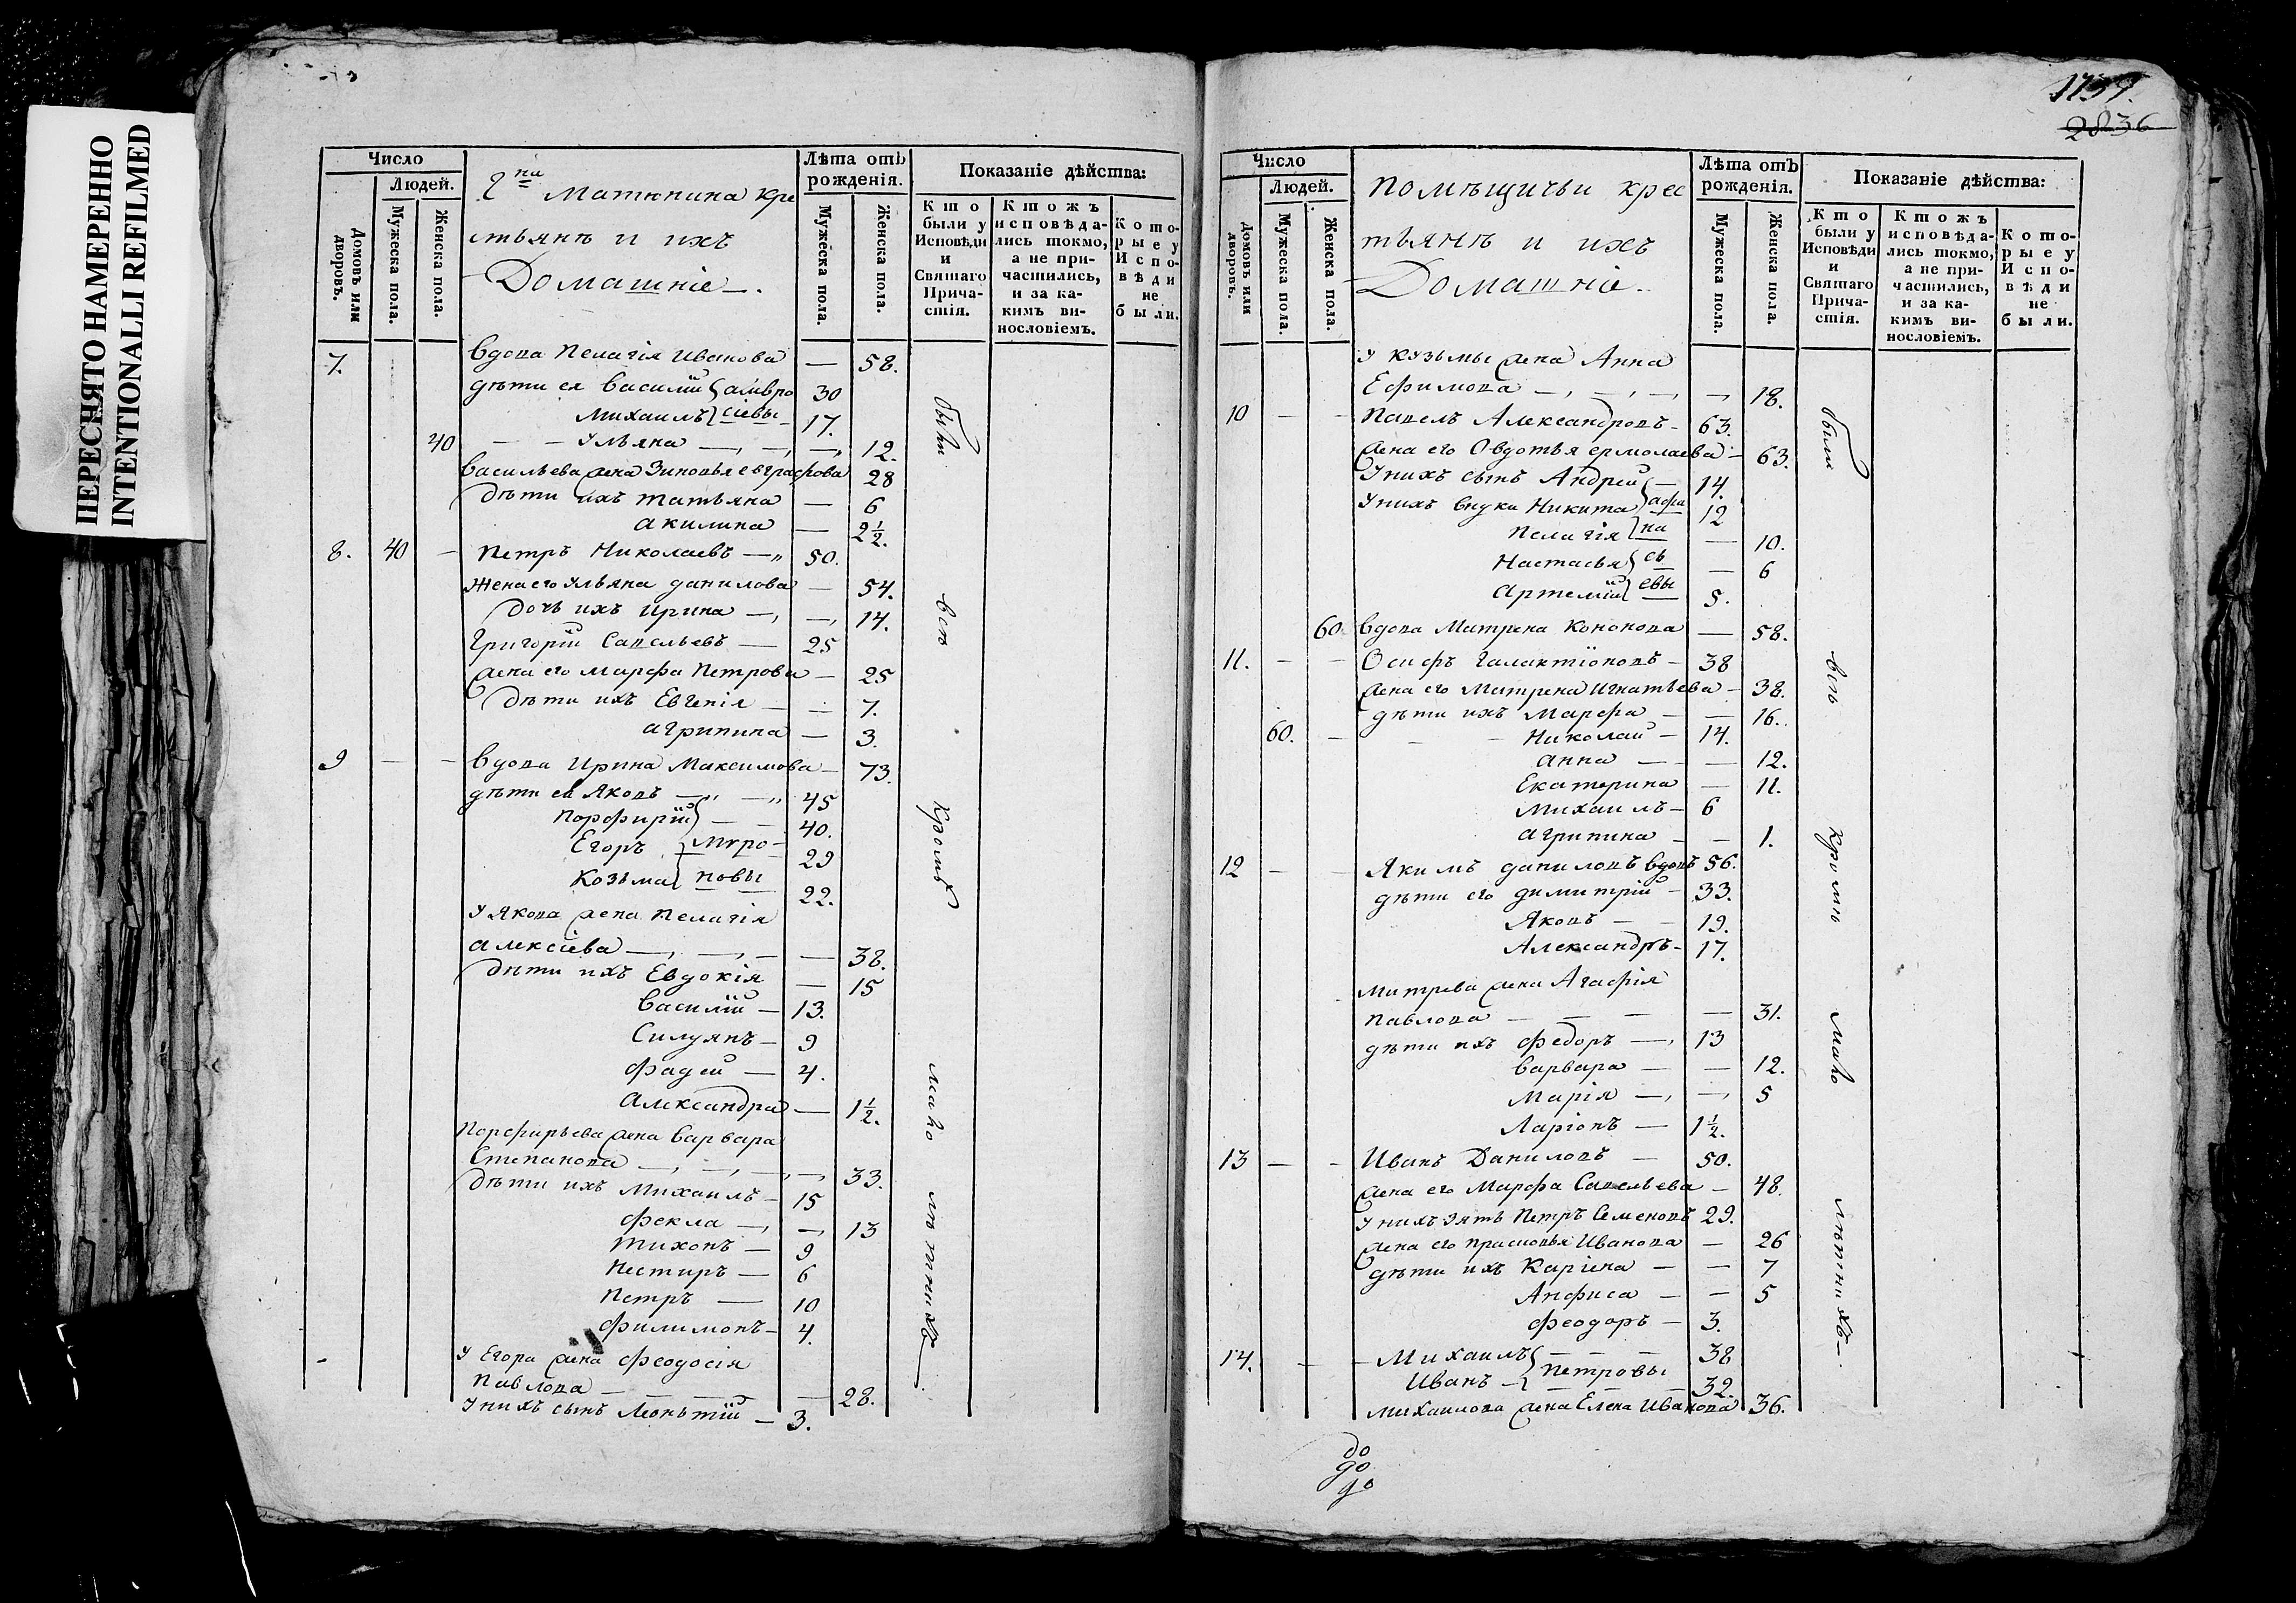 ПЕРЕСНЯТО НАМЕРЕННО
INTENTIONALLI REFILMED
Число
Людей.
Домовъ или дворовъ.
Мужеска пола.
Женска пола.
Гпа Матюнина кре
стьянъ и ихъ
Домашніе.
Лѣта отъ рожденія.
Мужеска пола.
Женска пола.
Показаніе дѣйства:
Кто были у Исповѣди и Святаго Прича-стія.
Ктожъ исповѣда-лись токмо, а не при-частились, и за ка-кимъ ви-нословіемъ.
Кото-рые у Испо-вѣди не были.
7. вдова Пелагія Иванова — 58.
дѣти ея Василій } Амвро 30
Михаилъ } сіевы 17.
40 — — Ульяна — 12.
Васильева жена Зиновья Евграфова 28
дѣти ихъ Татьяна — 6
Акилина — 2½.
8. 40 — Петръ Николаевъ — 50.
Жена его Ульяна Данилова — 54.
дочь ихъ Ирина — 14.
Григорій Савельевъ — 25
жена его Марфа Петрова — 25
дѣти ихъ Евгенія — 7.
Агрипина — 3.
9 — — вдова Ирина Максимова — 73.
дѣти ея Яковъ — 45
Порфирій } — 40.
Егоръ } Миро- 29
Козьма } новы 22.
у Якова жена Пелагія
Алексіева — 38.
дѣти ихъ Евдокія — 15
Василій — 13.
Силуянъ — 9
Фадей — 4.
Александра — 1½.
Порфирьева жена Варвара
Степанова — 33.
дѣти ихъ Михаилъ — 15
Фекла — 13
Тихонъ — 9
Нестиръ — 6
Петръ — 10
Филимонъ — 4.
у Егора жена Феодосія
Павлова — 28.
у нихъ сынъ Леонътій — 3.
были всѣ кромѣ мало лѣтнихъ
1739.
2836
Число
Людей.
Домовъ или дворовъ.
Мужеска пола.
Женска пола.
Помѣщичьи крес
тьянъ и ихъ
Домашніе.
Лѣта отъ рожденія.
Мужеска пола.
Женска пола.
Показаніе дѣйства:
Кто были у Исповѣди и Святаго Прича-стія.
Ктожъ исповѣда-лись токмо, а не при-частились, и за ка-кимъ ви-нословіемъ.
Кото-рые у Испо-вѣди не были.
у Кузьмы жена Анна
Ефимова — 18.
10 — — Павелъ Александровъ — 63.
жена его Овдотья Ермолаева — 63.
у нихъ сынъ Андрей — 14.
у нихъ внуки Никита } Афа 12
Пелагія } на — 10.
Настасья } сь — 6
Артемій } евы 5.
60. вдова Матрена Кононова — 58.
11. — — Осифъ Галактіоновъ — 38
жена его Матрена Игнатьева — 38.
дѣти ихъ Марфа — 16.
60. — — Николай — 14.
Анна — 12.
Екатерина — 11.
Михаилъ — 6
Агрипина — 1.
12 — — Якимъ Даниловъ вдовъ 56.
дѣти его Димитрій — 33.
Яковъ — 19.
Александръ — 17.
Митрева жена Агафія
Павлова — 31.
дѣти ихъ Федоръ — 13
Варвара — 12.
Марія — 5
Ларіонъ — 1½.
13 — — Иванъ Даниловъ — 50.
жена его Марфа Савельева — 48.
у нихъ зять Петръ Семеновъ 29.
жена его Прасковья Иванова — 26
дѣти ихъ — 7
Анфиса — 5
Феодоръ — 3.
14. — — Михаилъ } — 38
Иванъ } Петровы 32.
Михаилова жена Елена Иванова 36.
были всѣ кромѣ мало лѣтнихъ.
до
до
до